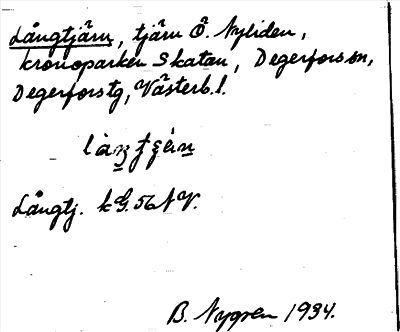 Långtjärn, tjärn Ö. Nyliden,
kronoparken Skatan, Degerfors sn,
Degerfors tg, Västerb. l.
Långtj. kG. 56 NV.
B. Nygren 1934.